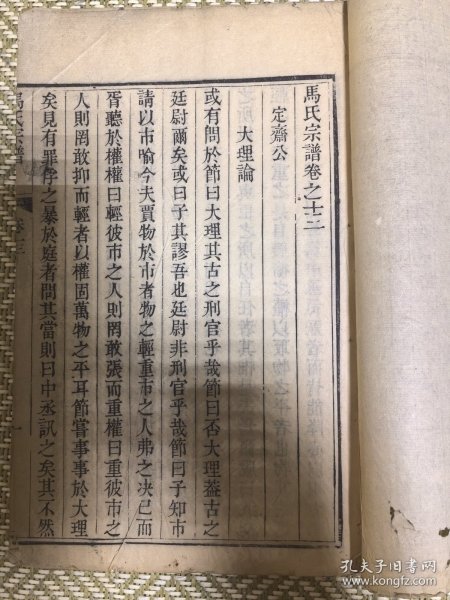 馬氏宗譜卷之十二
定齋公
大理論
或有問於節曰大理其古之刑官乎哉節曰否大理葢古之
廷尉爾矣或曰子其謬吾也廷尉非刑官乎哉節曰子知市
請以市喻今夫賈物於市者物之輕重市之人弗之决已而
胥聽於權權曰輕彼市之人則罔敢張而重權曰重彼市之
人則罔敢抑而輕者以權固萬物之平耳節嘗事事於大理
矣見有罪俘之暴於庭者問其當則曰中丞訊之矣其不然
馬氏宗譜
卷十二
一
孔夫子旧书网
www.kongfz.com